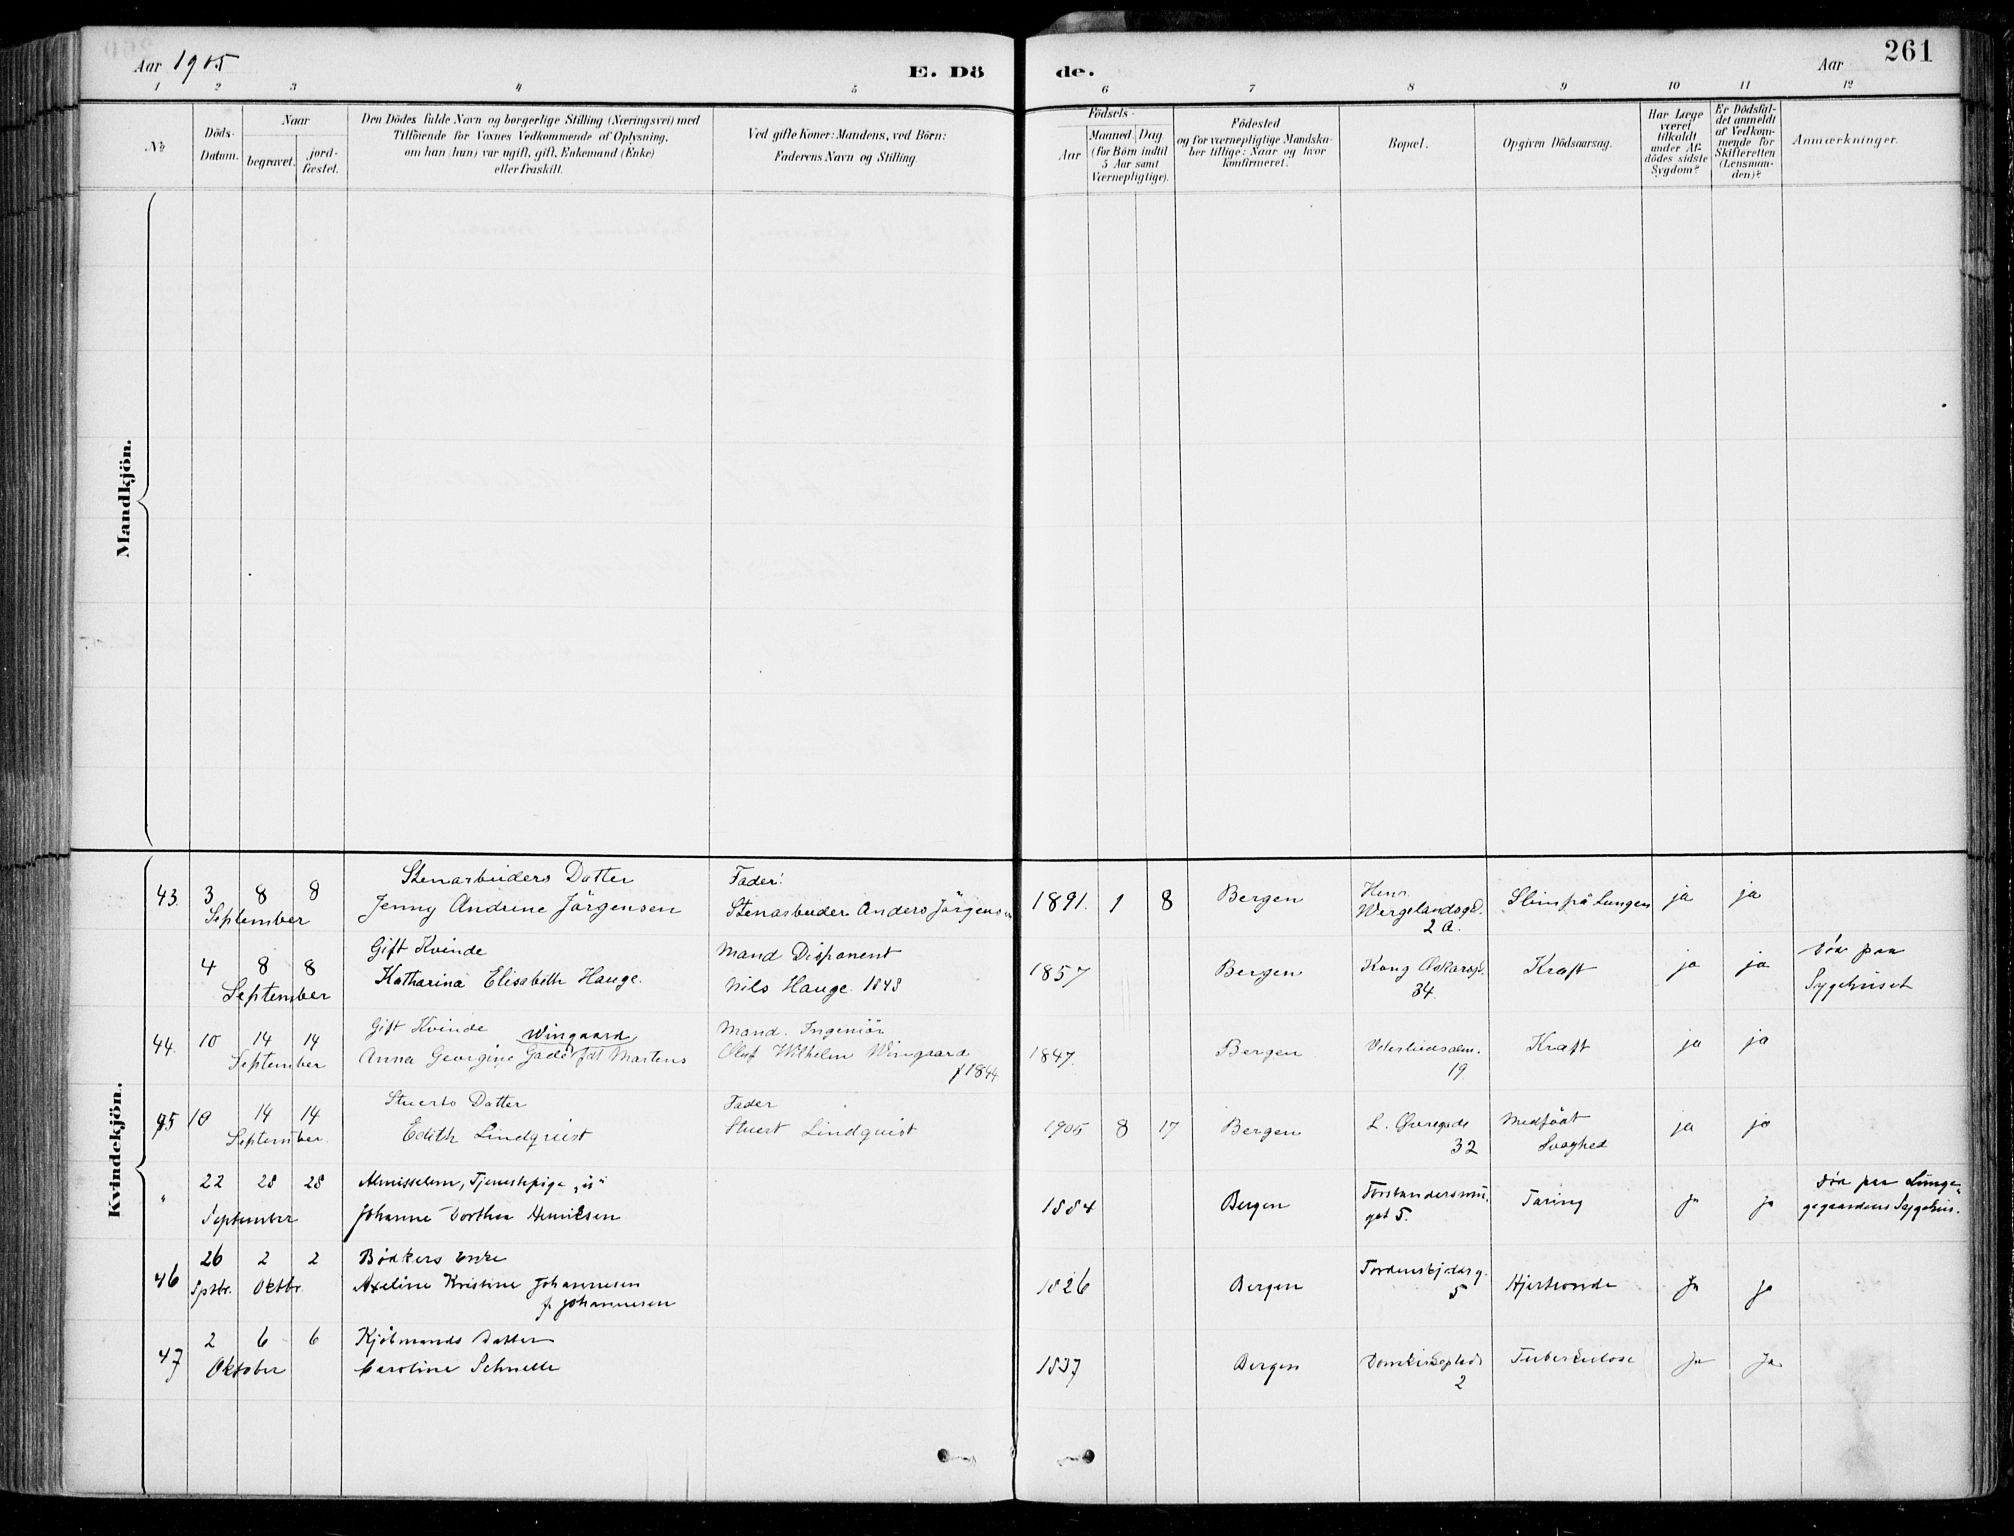 Aar 1905
E. Dö
de.
Aar
261
1 2 3 4 5 6 7 8 9 10 11 12
No
Döds-
Datum.
Naar
begravet.
jord-
fæstet.
Den Dödes fulde Navn og borgerlige Stilling (Næringsvei) med
Tilföiende for Voxnes Vedkommende af Oplysning,
om han (hun) var ugift, gift, Enkemand (Enke)
eller fraskilt.
Ved gifte Koner: Mandens, ved Börn:
Faderens Navn og Stilling.
Födsels-
Aar
Maaned Dag
(for Börn indtil
5 Aar samt
Værnepligtige).
Födested
og for værnepligtige Mandska-
ber tillige: Naar og hvor
konfirmeret.
Bopæl.
Opgiven Dödsaarsag.
Har Læge
været
tilkaldt
under Af-
dödes sidste
Sygdom?
Er Dödsfal-
det anmeldt
af Vedkom-
mende for
Skifteretten
(Lensman-
den)?
Anmærkninger.
Mandkjön.
Kvindekjön.
Stenarbeiders Datter Fader:
43. 3 8 8 Jenny Andrine Jörgensen Stenarbeider Anders Jörgensen 1891. 1 8 Bergen Henr. Slim på Lungen ja ja
September Wergelandsgd.
2 a.
Gift Kvinde Mand Disponent
4 8 8 Katharina Elisabeth Hauge. Nils Hauge 1843 1857 Bergen Kong Oskarsgd. Kræft ja ja Död paa
September 34. Sygehuset
Gift Kvinde Wingaard Mand. Ingeniör
44. 10 14 14 Anna Georgine Gade fdt Martens Oluf Wilhelm Wingaard 1847. Bergen Kræft ja ja
September f 1844 19.
Stuerts Datter Fader
45 10 14 14 Edith Lindquist Stuert Lindquist 1905 8 17 Bergen L. Övregade Medfödt ja ja
September. 32 Svaghed
" 22 28 28 Tjenestepige
September Johanne Dorthea Henriksen 1884 Bergen Forstandersmu- Tæring ja ja död paa Lunge-
get 5. gegaardens Sygehus.
26 2 2 Bødkers Enke
46 Sptbr. Oktbr. Axeline Kristine Johannesen 1826 Bergen Tordenskjoldsg. Hjerteonde ja ja
f. Johannesen 5
2 6 6 Kjöbmands Datter
47 Oktober Caroline Schnelle 1837 Bergen Domkirkeplads Tuberkulose ja ja
2